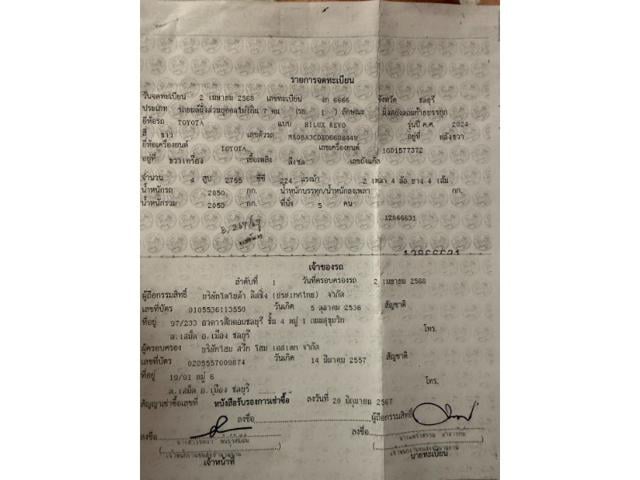 รายการจดทะเบียน
วันจดทะเบียน 2 เมษายน 2568 เลขทะเบียน 6666 จังหวัด ชลบุรี
ประเภท รถยนต์นั่งส่วนบุคคลไม่เกิน 7 คน (รย. 1 ) ลักษณะ
ยี่ห้อรถ TOYOTA แบบ HILUX REVO รุ่นปี ค.ศ. 2024
สี ขาว เลขตัวรถ อยู่ที่
ยี่ห้อเครื่องยนต์ TOYOTA เลขเครื่องยนต์ 1GD1577372
อยู่ที่ ขวาเครื่อง เชื้อเพลิง ดีเซล เลขถังแก๊ส
จำนวน 4 สูบ 2755 ซีซี 224 แรงม้า 2 เพลา 4 ล้อ ยาง 4 เส้น
น้ำหนักรถ 2050 กก. น้ำหนักบรรทุก/น้ำหนักลงเพลา กก.
น้ำหนักรวม 2050 กก. ที่นั่ง 5 คน
12866631
12866631
เจ้าของรถ
ลำดับที่ 1 วันที่ครอบครองรถ 2 เมษายน 2568
ผู้ถือกรรมสิทธิ์ บริษัทโตโยต้า ลีสซิ่ง (ประเทศไทย) จำกัด
เลขที่บัตร 0105536113550 วันเกิด 5 ตุลาคม 2536 สัญชาติ
ที่อยู่ 97/233 อาคารสีกคอมชลบุรี ชั้น 4 หมู่ 1 ถนนสุขุมวิท
ต.เสม็ด อ.เมือง ชลบุรี โทร.
ผู้ครอบครอง จำกัด
เลขที่บัตร 0205557009874 วันเกิด 14 มีนาคม 2557 สัญชาติ
ที่อยู่ 19/91 หมู่ 6
ต.เสม็ด อ.เมือง ชลบุรี โทร.
สัญญาเช่าซื้อเลขที่ หนังสือรับรองการเช่าซื้อ ลงวันที่ 20 มิถุนายน 2567
ลงชื่อ ผู้ถือกรรมสิทธิ์
ลงชื่อ ลงชื่อ
เจ้าหน้าที่ นายทะเบียน